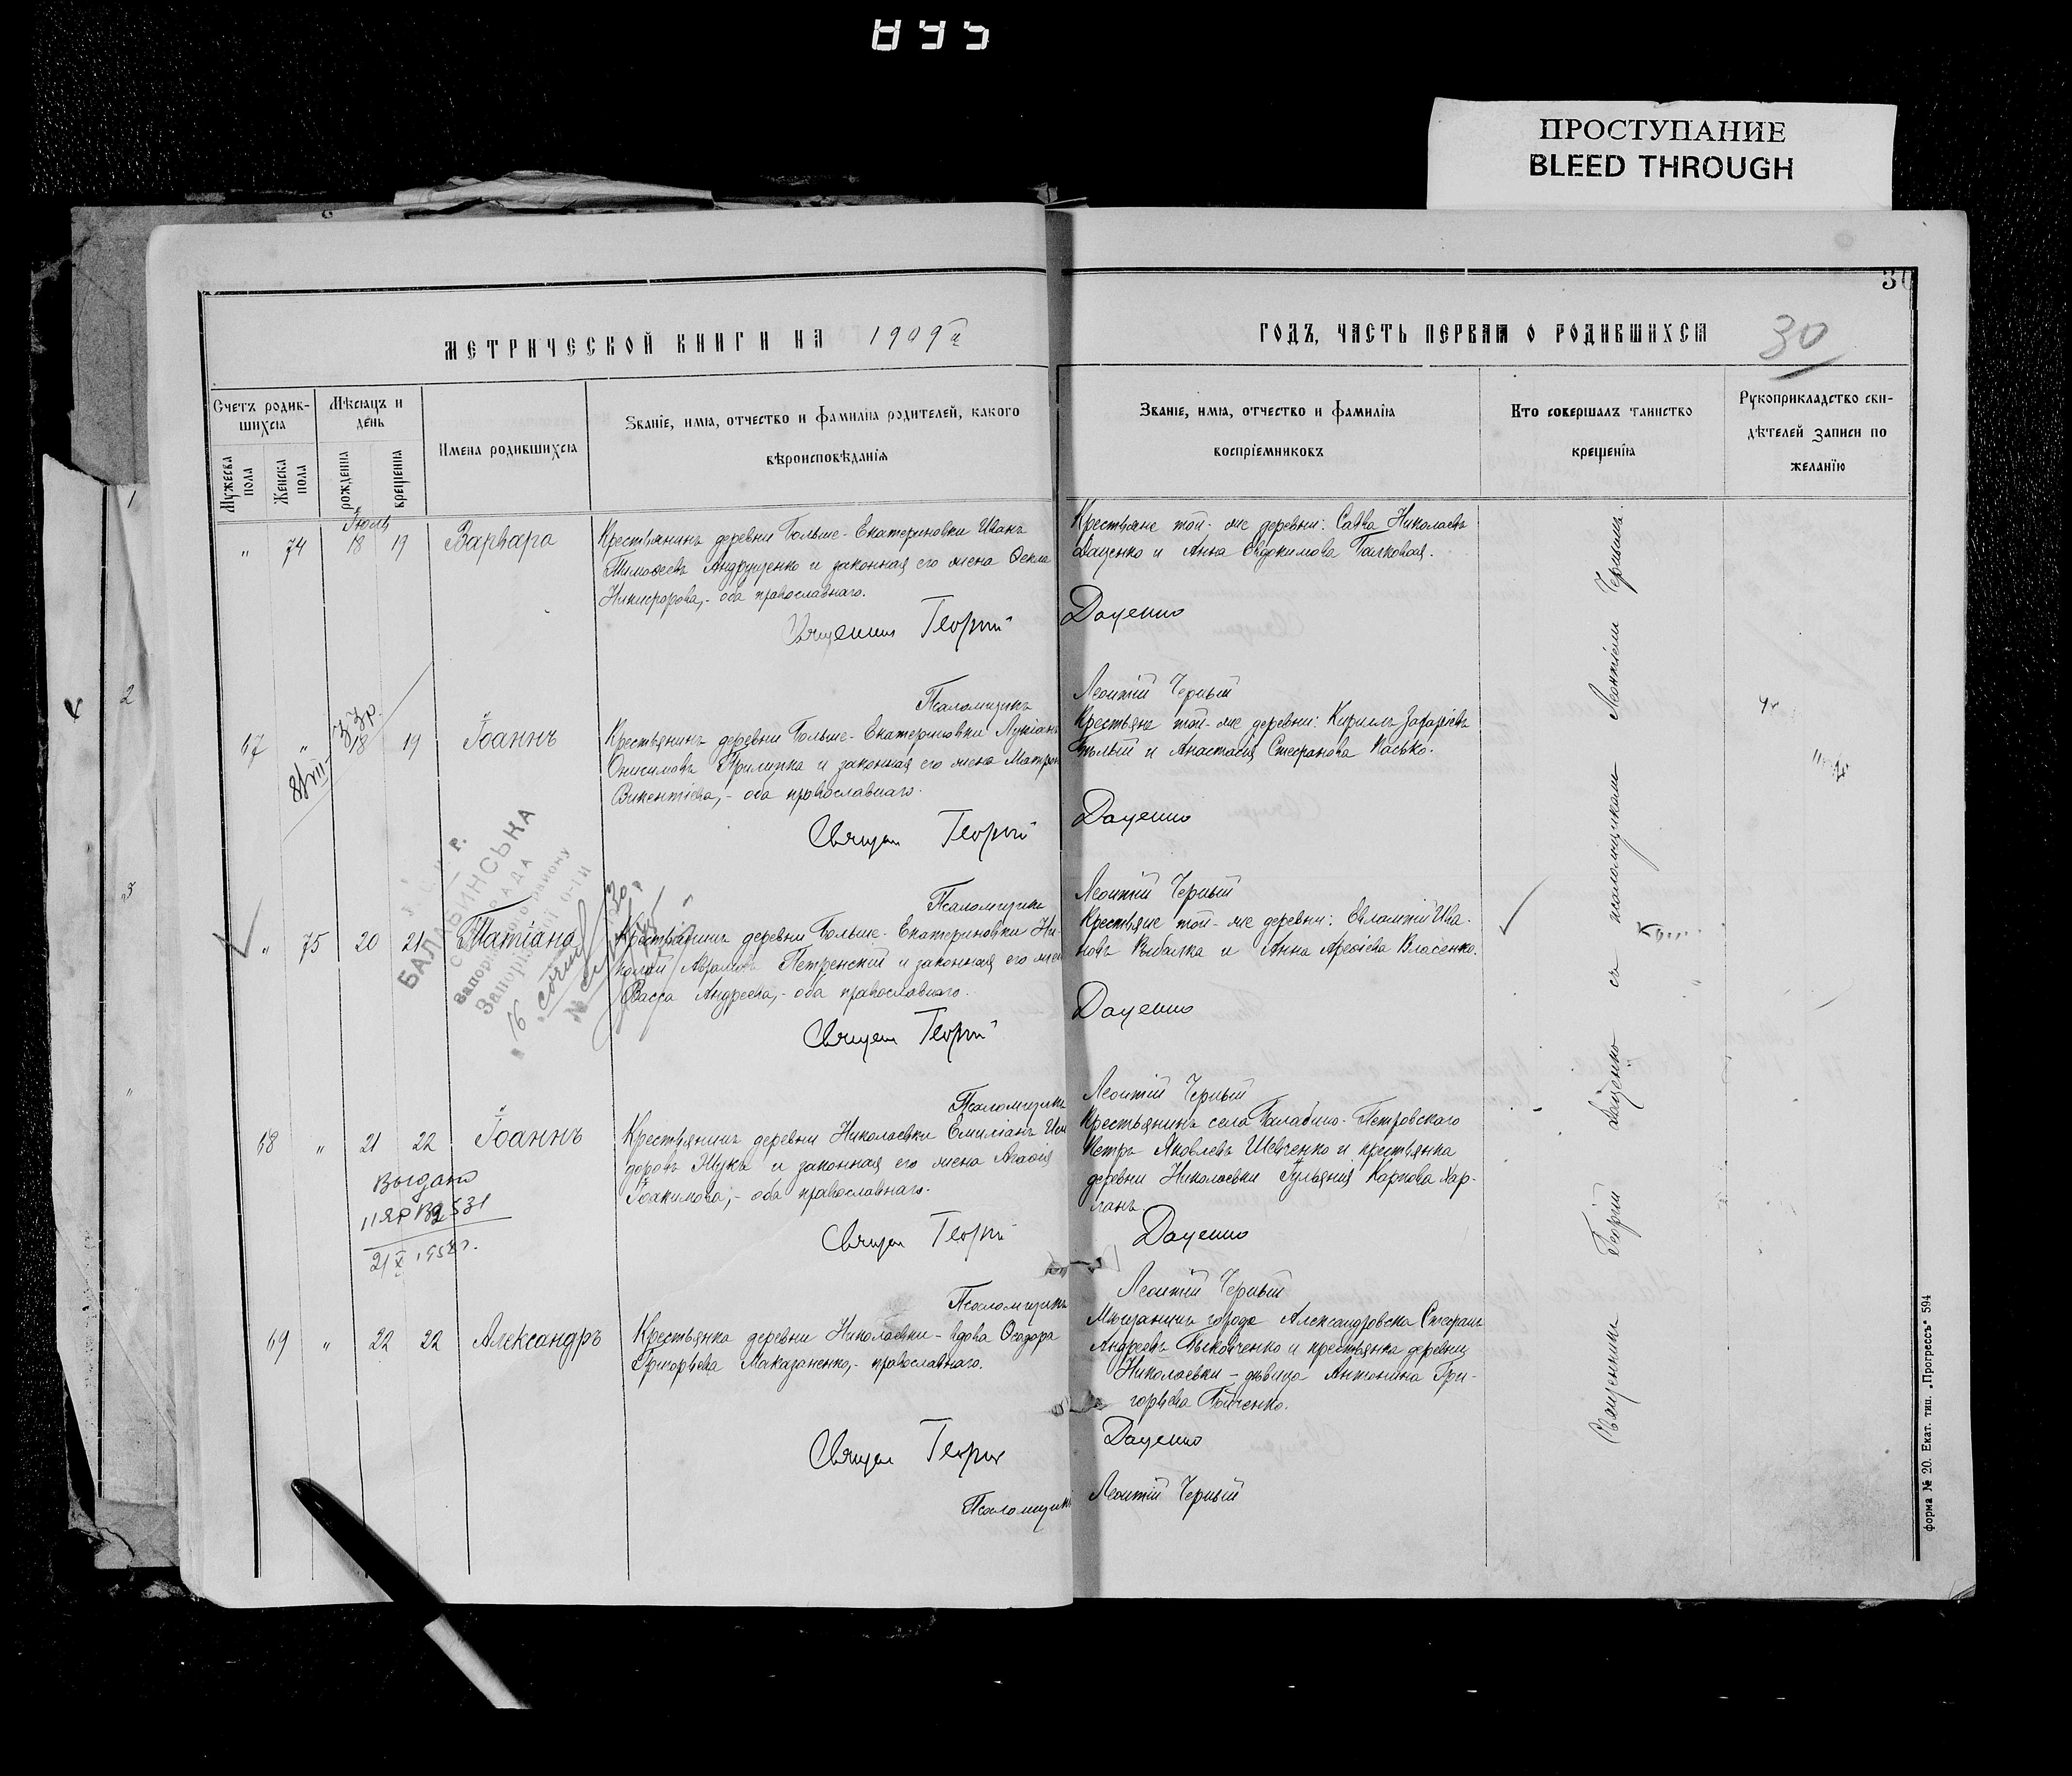 895
ПРОСТУПАНИЕ
BLEED THROUGH
МЕТРИЧЕСКОЙ КНИГИ НА 1909
ГОДЪ, ЧАСТЬ ПЕРВАЯ О РОДИВШИХСЯ
30
30
Счетъ родив-
шихся
Мужеска пола
Женска пола
Мѣсяцъ и
день
рожденія
крещенія
Имена родившихся
Званіе, имя, отчество и фамилія родителей, какого
вѣроисповѣданія
Званіе, имя, отчество и фамилія
воспріемниковъ
Кто совершалъ таинство
крещенія
Рукоприкладство сви-
дѣтелей записи по
желанію
Іюль
" 74 18 19 Варвара
Крестьянинъ деревни Больше-Екатериновки Иванъ
Тимоѳеевъ Андрущенко и законная его жена Ѳекла
Никифорова,- оба православнаго.
Крестьяне той-же деревни: Савва Николаевъ
Даценко и Анна Евдокимова Балковая.
Священник Георгий Даценко
Псаломщикъ Леонтій Черный
67 " 18 19 Іоаннъ
Крестьянинъ деревни Больше-Екатериновки Лукіанъ
Онисимовъ Прилипка и законная его жена Матрон
Викентіева,- оба православнаго.
Крестьяне той-же деревни: Кириллъ Захаріевъ
Бѣлый и Анастасія Стефанова Касько.
Священ Георгий Даценко
Псаломщикъ Леонтій Черный
БАЛАБИНСЬКА
Запорізького району
" 75 20 21 Татіана
Крестьянинъ деревни Больше-Екатериновки Ни-
колай Авраамовъ Петренскій и законная его жен
Васса Андреева,- оба православнаго.
Крестьяне той-же деревни: Евлампій Ива-
новъ Рыбалка и Анна Ареѳіева Власенко.
Священ Георгий Даценко
Псаломщикъ Леонтій Черный
68 " 21 22 Іоаннъ
Крестьянинъ деревни Николаевки Емиліанъ Иси
доровъ Жукъ и законная его жена Агаѳія
Іоакимова,- оба православнаго.
Крестьянинъ села Балабино-Петровскаго
Петръ Яковлевъ Шевченко и крестьянка
деревни Николаевки Іуліанія Карпова Хар-
ланъ.
Выдано
Священ Георгий Даценко
Псаломщикъ Леонтій Черный
69 " 22 22 Александръ
Крестьянка деревни Николаевки - вдова Ѳеодора
Григорьева Маказаненко,- православнаго.
Мѣщанинъ города Александровска Стефанъ
Андреевъ Быковченко и крестьянка деревни
Николаевки - дѣвица Антонина Гри-
горьева Бойченко.
Священ Георгий Даценко
Псаломщикъ Леонтій Черный
Священникъ Георгій Даценко съ псаломщикомъ Леонтіемъ Чернымъ.
форма № 20. Екат. тип. „Прогрессъ" 594